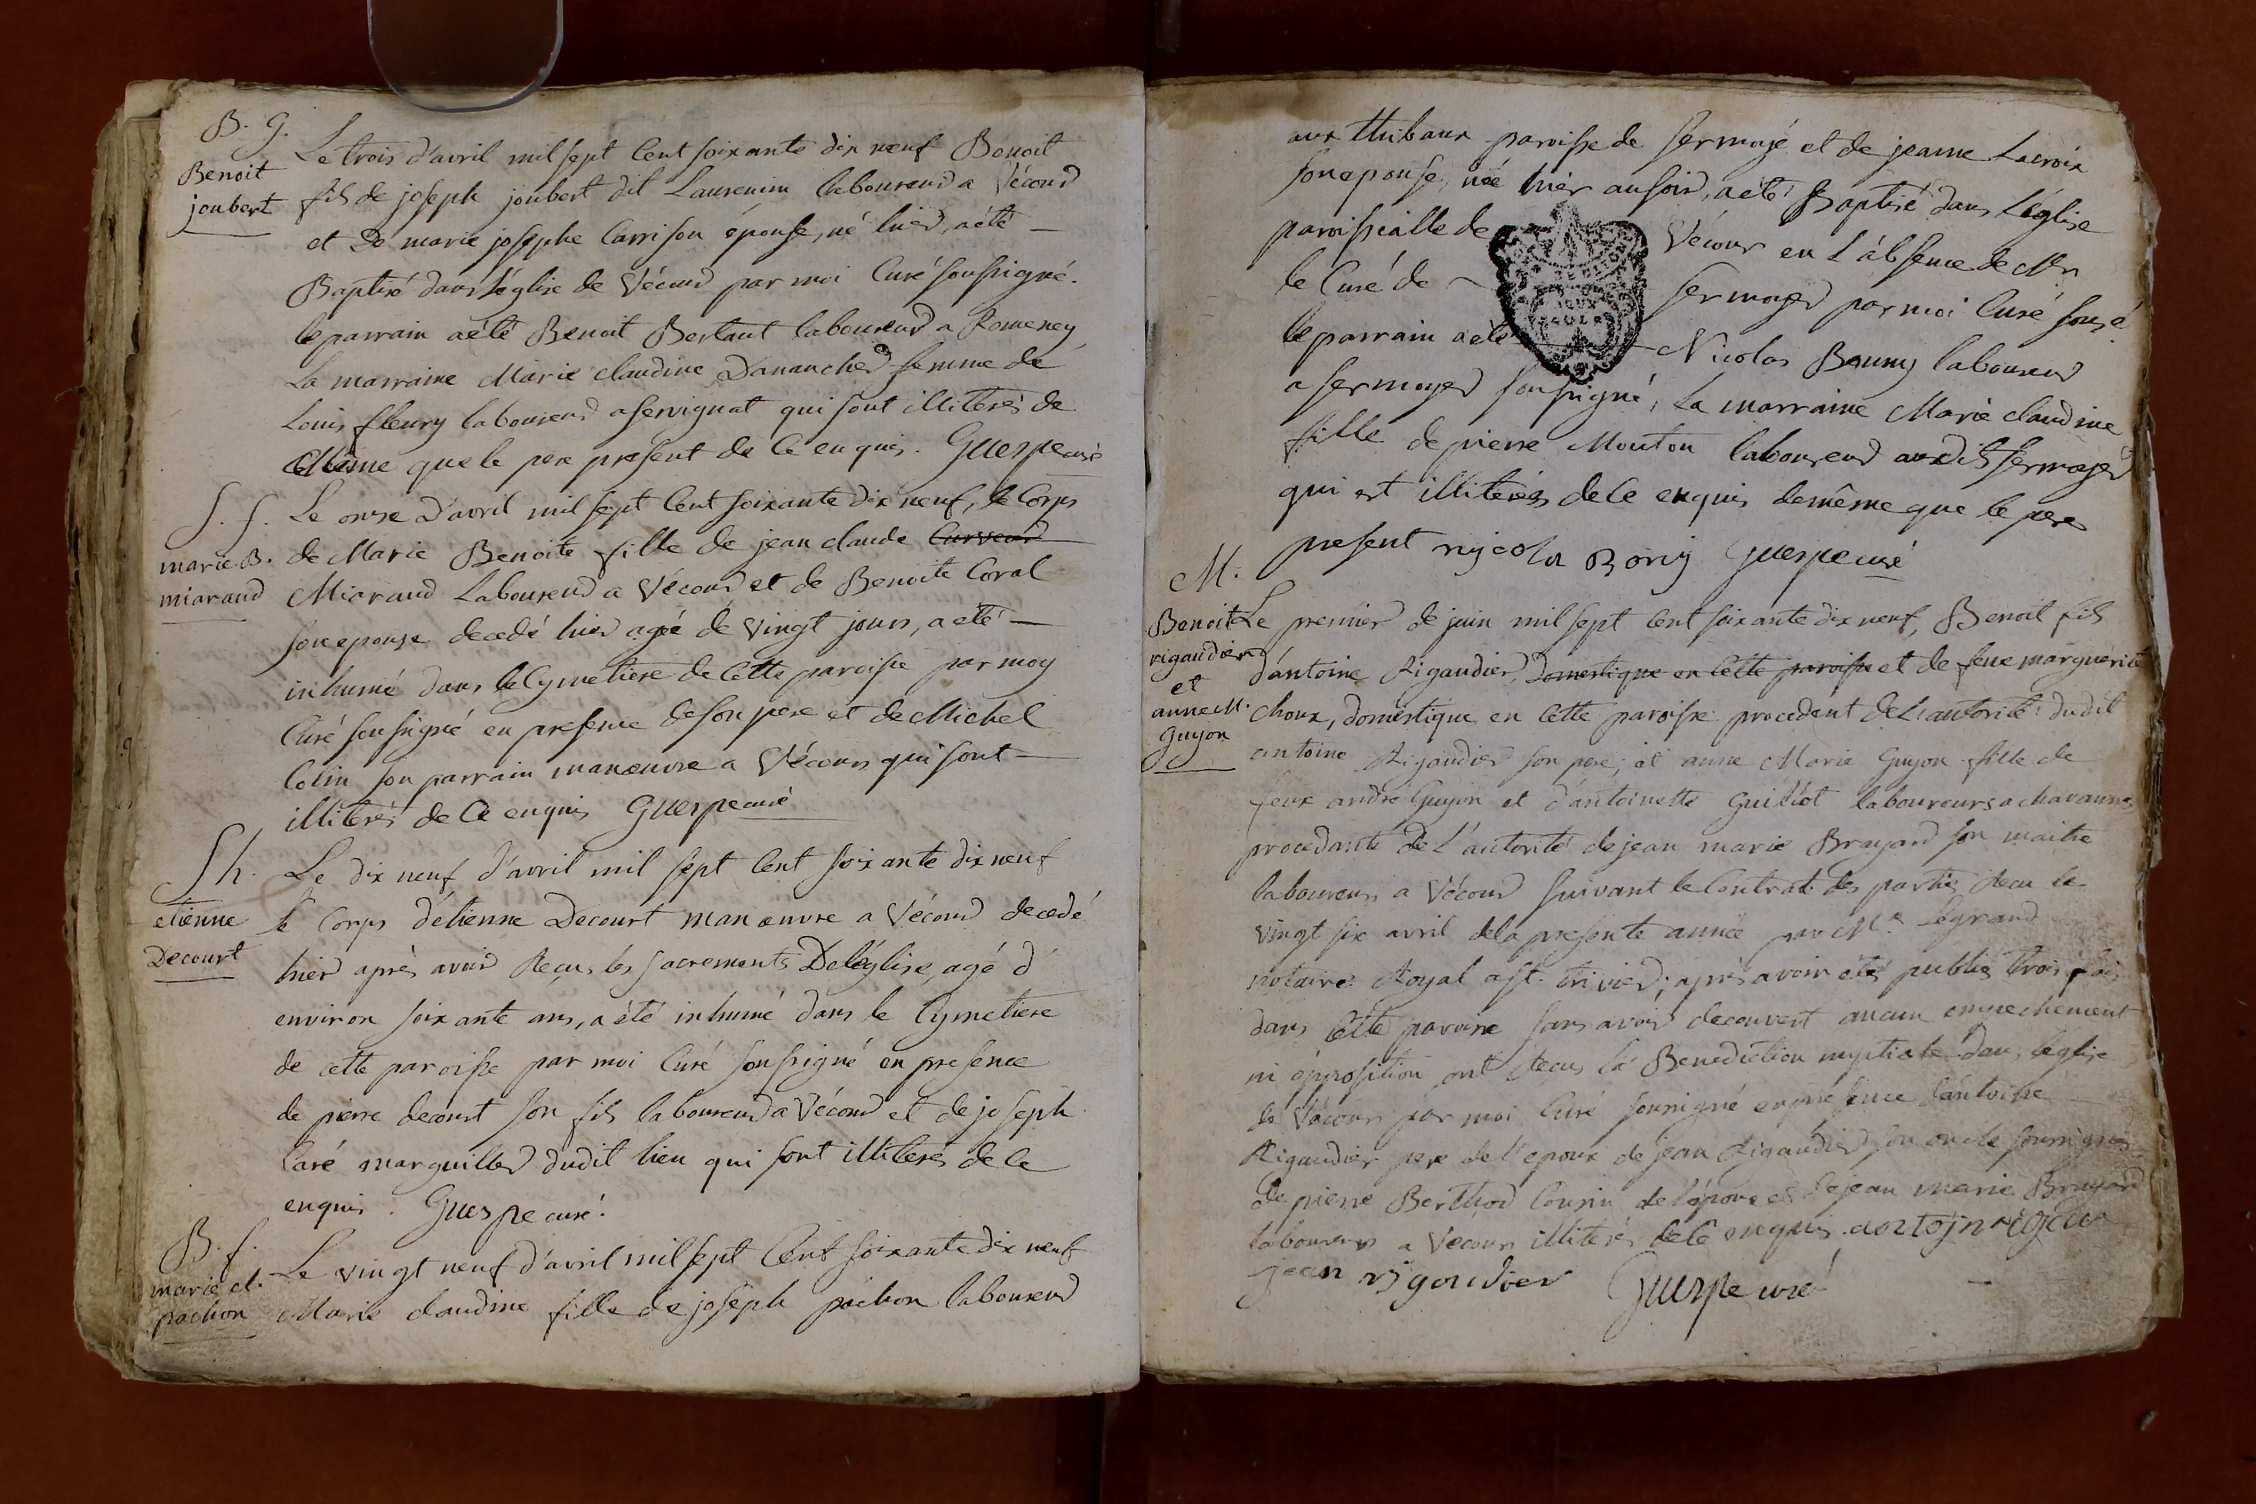 B. G.
Benoit
joubert
Le trois d'avril mil sept Cent soixante dix neuf Benoit
fils de joseph joubert dit Laurencin laboureur a Vécour
et De marie josephe Carrison épouse, né hier, a été
Baptisé dans l'église de Vécour par moi Curé soussigné.
le parrain a été Benoit Bertaut laboureur a Romeney
La marraine Marie claudine Danancher femme de
Louis fleury laboureur a servignat qui sont illiterés de
Même que le pere present de Ce enquis. Guerpe curé
S. f.
marie B.
miaraud
Le onze d'avril mil sept Cent soixante dix neuf, le Corps
de Marie Benoite fille de jean claude Curveur
Miaraud Laboureur a Vécour et de Benoite Coral
son epouse decedé hier agée de vingt jours, a été
inhumé dans le Cymetiere de Cette paroisse par moy
Curé soussigné en presence de son pere et de Michel
Colin son parrain manœuvre a Vécour qui sont
illiterés de Ce enquis Guerpe curé
S h.
etienne
Decourt
Le dix neuf d'avril mil sept Cent soixante dix neuf
le Corps d'étienne Decourt manœuvre a Vécour decedé
hier après avoir Reçus les sacrements De l'église, agé d'
environ soixante ans, a été inhumé dans le Cymetiere
de cette paroisse par moi Curé soussigné en presence
de pierre decourt son fils laboureur a Vécour et de joseph
Caré marguiller dudit lieu qui sont illiterés de Ce
enquis. Guerpe curé.
B. f.
marie cl.
pachon
Le vingt neuf d'avril mil sept Cent soixante dix neuf
Marie claudine fille de joseph pachon laboureur
aux thibaux paroisse de sermoyé et de jeanne Lacroix
son epouse, née hier au soir, a été Baptisé dans L'église
paroissialle de Vécour en L'absence de Mr
le Curé de sermoyer par moi Curé sousé
le parrain a été Nicolas Bouny laboureur
a sermoyer soussigné, La marraine Marie claudine
fille de pierre Mouton laboureur audit sermoyer
qui est illiterés de Ce enquis de même que le pere
present nycola Bony Guerpe curé
M.
Benoit
rigaudier
et
anne M.
Guyon
Le premier de juin mil sept Cent soixante dix neuf, Benoit fils
d'antoine Rigaudier, Domestique en Cette paroisse et de feue marguerite
Choux, domestique en Cette paroisse procedent de L'autorité dudit
antoine Rigaudier son pere, et anne Marie Guyon fille de
feux andré Guyon et d'antoinette Guilliot laboureurs a chavannes
procedante de L'autorité de jean marie Brayard son maitre
laboureur a Vécour suivant le Contrat des parties Recu le
vingt six avril de la presente année par Me. Legrand
notaire Royal a st. trivier; après avoir étés publiés trois fois
dans Cette paroisse sans avoir decouvert aucun empechement
ni opposition ont Recus la Benediction nuptiale dans l'eglise
de Vécour par moi Curé soussigné en presence d'antoine
Rigaudier pere de l'epoux de jean Rigaudier son oncle soussignés
de pierre Berthod Cousin de l'épouse et de jean marie Brayard
laboureurs a Vécour illiterés de Ce enquis. antojn
jean rigoudier Guerpe curé